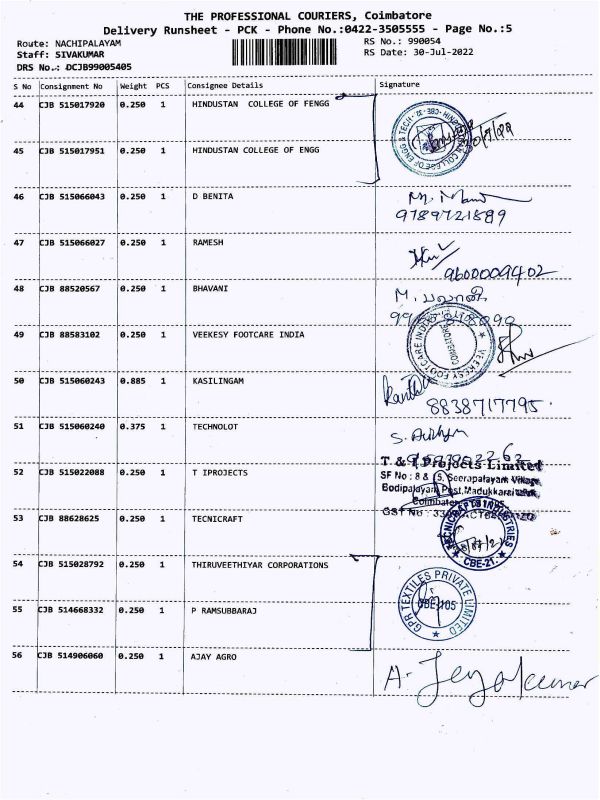 THE PROFESSIONAL COURIERS, Coimbatore
Delivery Runsheet - PCK - Phone No.:0422-3505555 - Page No.:5
Route: NACHIPALAYAM RS No.: 990054
Staff: SIVAKUMAR RS Date: 30-Jul-2022
DRS No.: DCJB99005405
S No Consignment No Weight PCS Consignee Details Signature
44 CJB 515017920 0.250 1 HINDUSTAN COLLEGE OF FENGG
45 CJB 515017951 0.250 1 HINDUSTAN COLLEGE OF ENGG
46 CJB 515066043 0.250 1 D BENITA
9789721889
47 CJB 515066027 0.250 1 RAMESH
9600009402
48 CJB 88520567 0.250 1 BHAVANI M.
49 CJB 88583102 0.250 1 VEEKESY FOOTCARE INDIA VEEKESY FOOTCARE INDIA COIMBATORE
50 CJB 515060243 0.885 1 KASILINGAM
8838717795
51 CJB 515060240 0.375 1 TECHNOLOT S.
T & I Projects Limited
52 CJB 515022088 0.250 1 T IPROJECTS SF No : 8 & 5, Seerapalayam Village,
Bodipalayam Post, Madukkarai
Coimbatore
GST No :
53 CJB 88628625 0.250 1 TECNICRAFT INDUSTRIES CBE-21.
54 CJB 515028792 0.250 1 THIRUVEETHIYAR CORPORATIONS
55 CJB 514668332 0.250 1 P RAMSUBBARAJ GPR TEXTILES PRIVATE LIMITED CBE-105
56 CJB 514906060 0.250 1 AJAY AGRO A. Jeyakumar